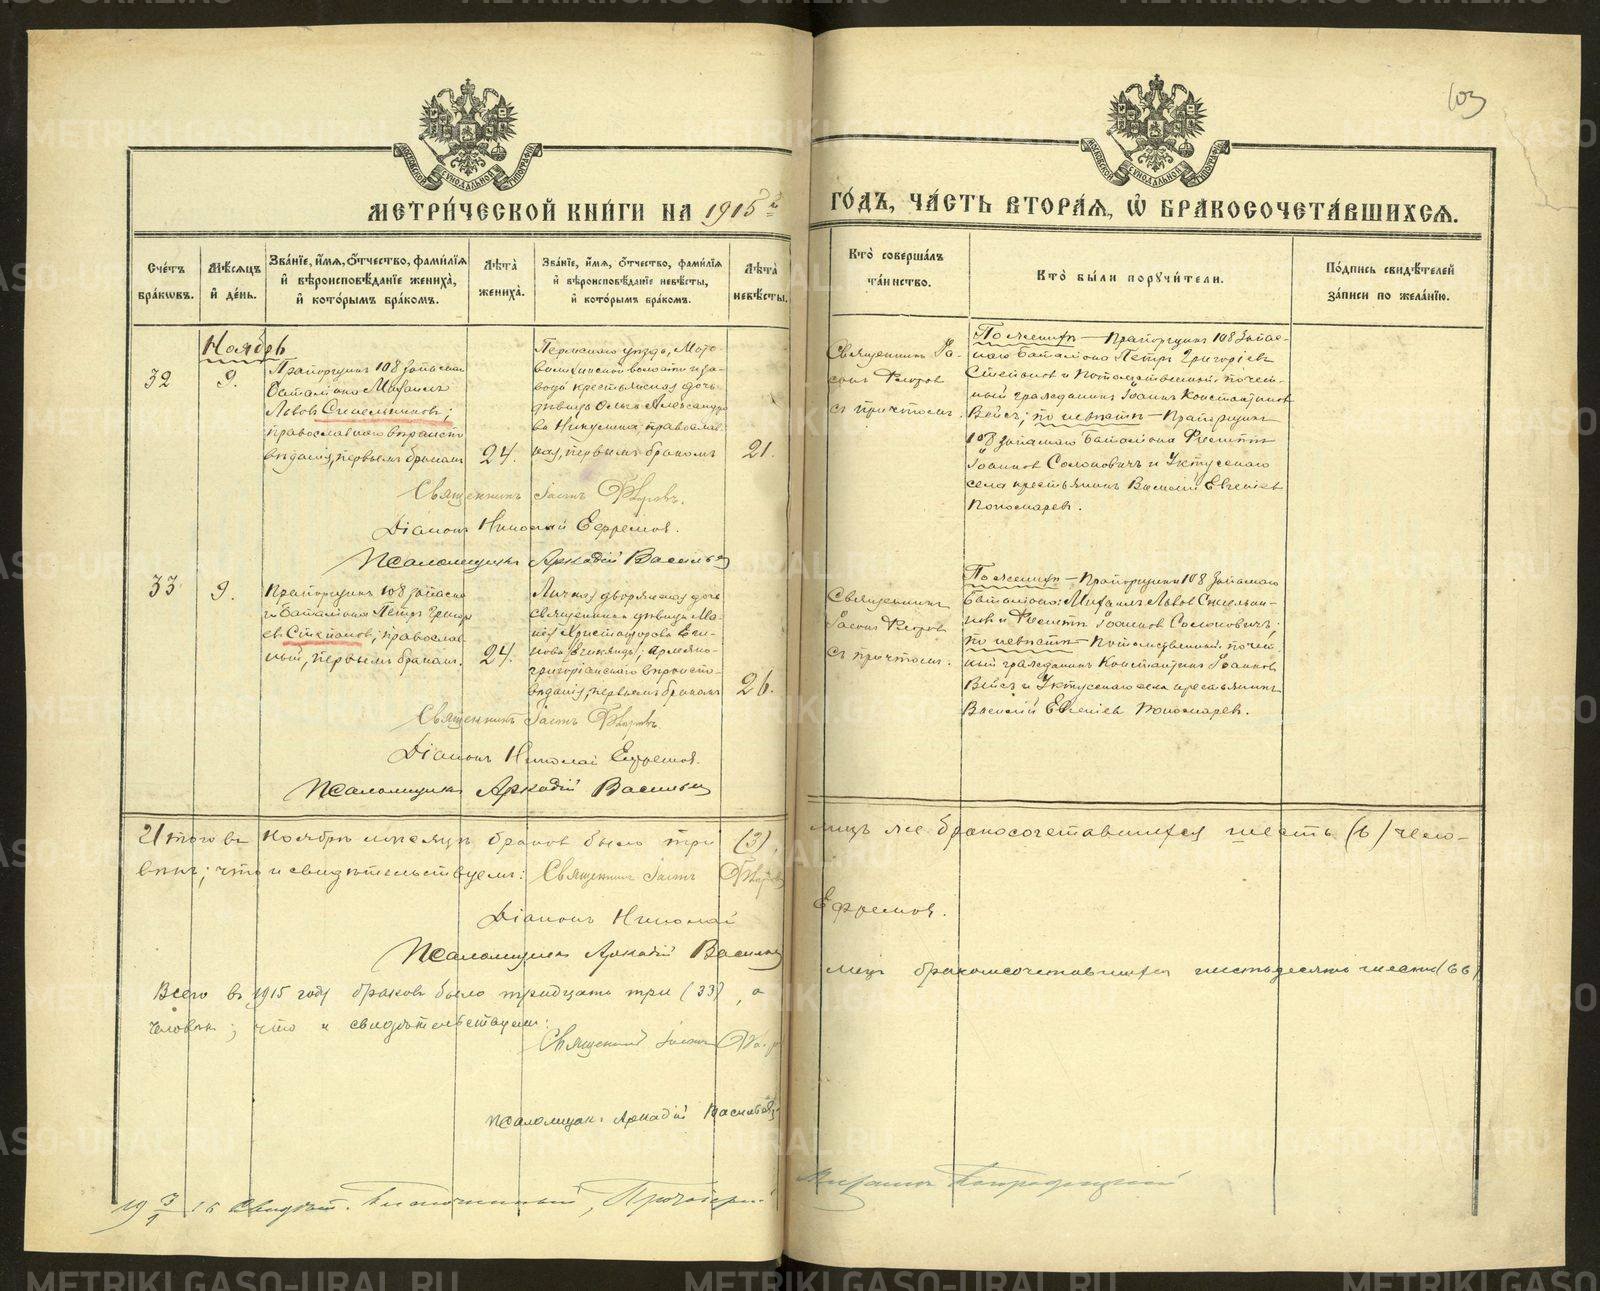 103
МЕТРИ́ЧЕСКОЙ КНИ́ГИ НА 1915 й ГО́ДЪ, ЧА́СТЬ ВТОРА́Я, Ѡ БРАКОСОЧЕТА́ВШИХСЯ.
Сче́тъ бра́ковъ.
Мѣ́сяцъ и де́нь.
Зва́ніе, и́мя, о́тчество, фами́лія и вѣроисповѣ́даніе жениха̀, и кото́рымъ бра́комъ.
Лѣта̀ жениха̀.
Зва́ніе, и́мя, о́тчество, фами́лія и вѣроисповѣ́даніе невѣ́сты, и кото́рымъ бра́комъ.
Лѣта̀ невѣ́сты.
Кто̀ соверша́лъ та́инство.
Кто̀ бы́ли поручи́тели.
По́дпись свидѣ́телей за́писи по жела́нію.
Ноябрь
32
9.
Прапорщикъ 108 запасн.
баталіона Михаилъ
Львовъ Синельниковъ;
православнаго вѣроиспо
вѣданія, первымъ бракомъ
24.
Пермскаго уѣзда, Мото
вилихинской волости и за-
вода крестьянская дочь
дѣвица Ольга Александро
ва Никулина; православ
ная, первымъ бракомъ
21.
Священникъ
съ причтомъ.
По женихѣ – Прапорщикъ 108 запас-
наго баталіона Петръ Григоріевъ
Степановъ и Потомственный почет-
ный гражданинъ Іоаннъ Константиновъ
Вейсъ; по невѣстѣ – Прапорщикъ
108 запаснаго баталіона
Іоанновъ Солоновичъ и Уктусскаго
села крестьянинъ Василій Евгеніевъ
Пономаревъ.
Священникъ
Діаконъ Николай Ефремовъ.
Псаломщикъ Аркадій Васильевъ
33
9.
Прапорщикъ 108 запасна
го баталіона Петръ Григорі
евъ Степановъ; православ
ный, первымъ бракомъ.
24.
Личная дворянская дочь
священника дѣвица Ма-
Христофорова
армяно-
григоріанскаго вѣроиспо-
вѣданія, первымъ бракомъ
26.
Священникъ
съ причтомъ.
По женихѣ – Прапорщики 108 запаснаго
баталіона: Михаилъ Львовъ Синельни-
ковъ и Іоанновъ Солоновичъ;
по невѣстѣ – Потомственный почет
ный гражданинъ Константинъ Іоанновъ
Вейсъ и Уктусскаго села крестьянинъ
Василій Евгеніевъ Пономаревъ.
Священникъ
Діаконъ Николай Ефремовъ.
Псаломщикъ Аркадій Васильевъ
Итого въ Ноябрѣ мѣсяцѣ браковъ было три (3), лицъ же бракосочетавшихся шесть (6) чело-
вѣкъ; что и свидѣтельствуемъ: Священникъ
Діаконъ Николай Ефремовъ.
Псаломщикъ Аркадій Васильевъ
Всего въ 1915 году браковъ было тридцать три (33), а лицъ бракосочетавшихся шестьдесятъ шесть (66)
человѣкъ; что и свидѣтельствуемъ:
Священникъ
Псаломщикъ Аркадій Васильевъ
19 3/1 16 Свидѣт. Благочинный, Протоіерей
METRIKI.GASO-URAL.RU